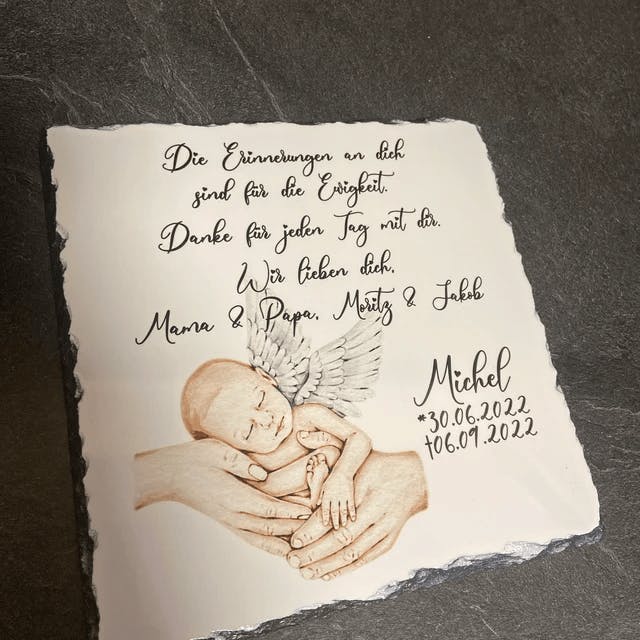 Die Erinnerungen an dich
sind für die Ewigkeit.
Danke für jeden Tag mit dir.
Wir lieben dich,
Mama & Papa, Moritz & Jakob
Michel
*30.06.2022
†06.09.2022